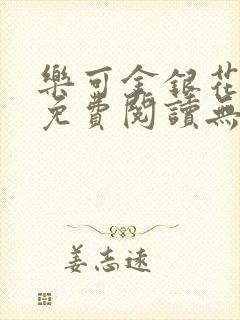 樂可金銀花
免費閱讀無
姜志远